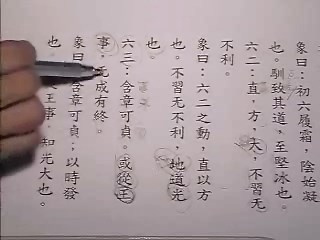 象曰：初六履霜，陰始凝
也。馴致其道，至堅冰也。
六二：直，方，大，不習无
不利。
象曰：六二之動，直以方
也。不習无不利，地道光
也。
六三：含章可貞。或從王
事，无成有終。
象曰：含章可貞；以時發
也。　　王事，知光大也。